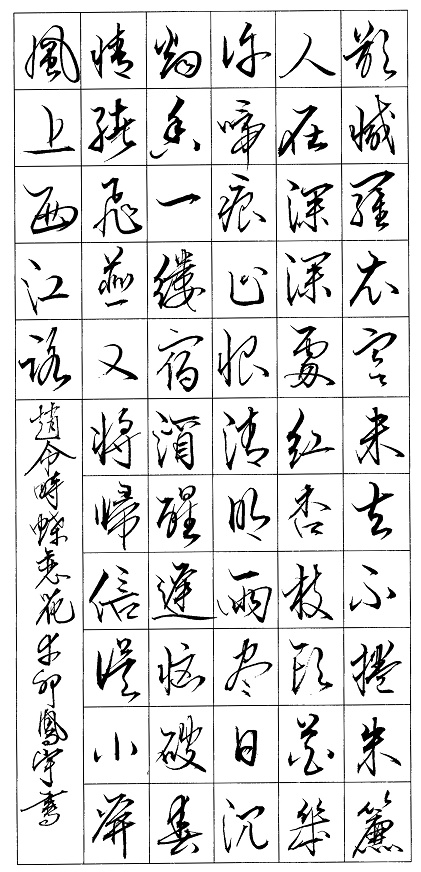 欲減羅衣寒未去不捲朱簾
人在深深處紅杏枝頭花幾
许啼痕止恨清明雨尽日沉
烟香一縷宿酒醒遲惱破春
情緒飛燕又將歸信誤小屏
風上西江路
趙令時蝶恋花 卯鳳宇書